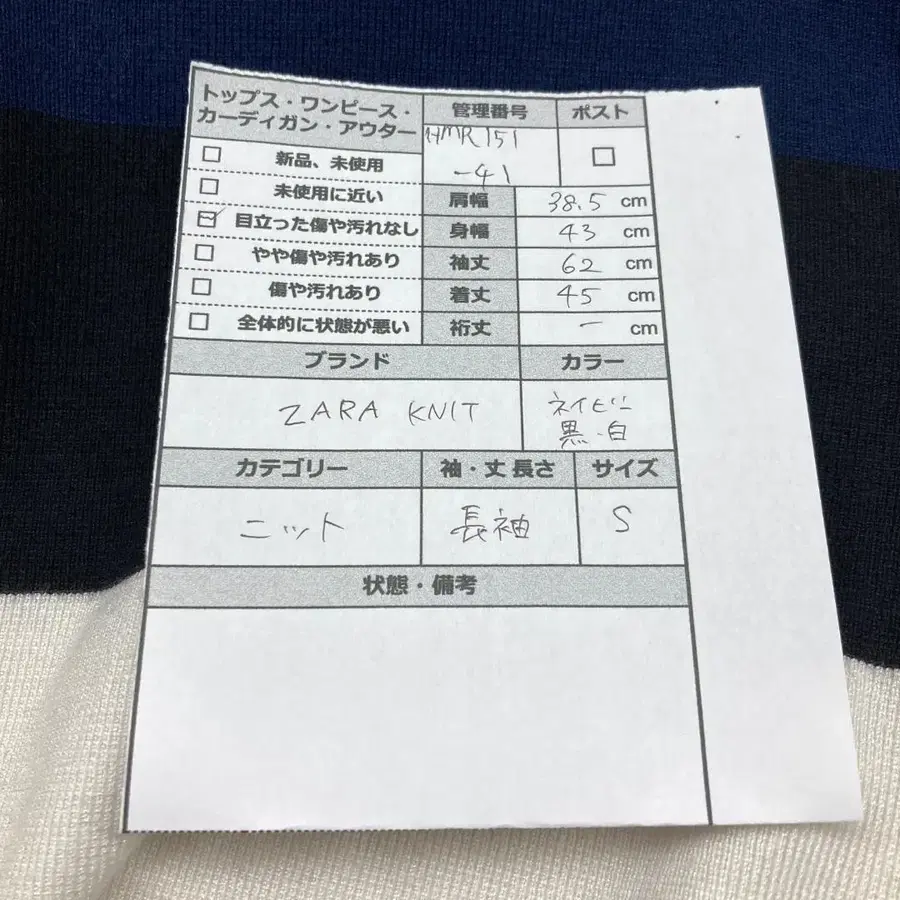 トップス・ワンピース・
カーディガン・アウター
管理番号
ポスト
HMR151
-41
新品、未使用
未使用に近い
目立った傷や汚れなし
やや傷や汚れあり
傷や汚れあり
全体的に状態が悪い
肩幅 38.5 cm
身幅 43 cm
袖丈 62 cm
着丈 45 cm
裄丈 ー cm
ブランド
カラー
ZARA KNIT
ネイビー
黒・白
カテゴリー
袖・丈 長さ
サイズ
ニット
長袖
S
状態・備考